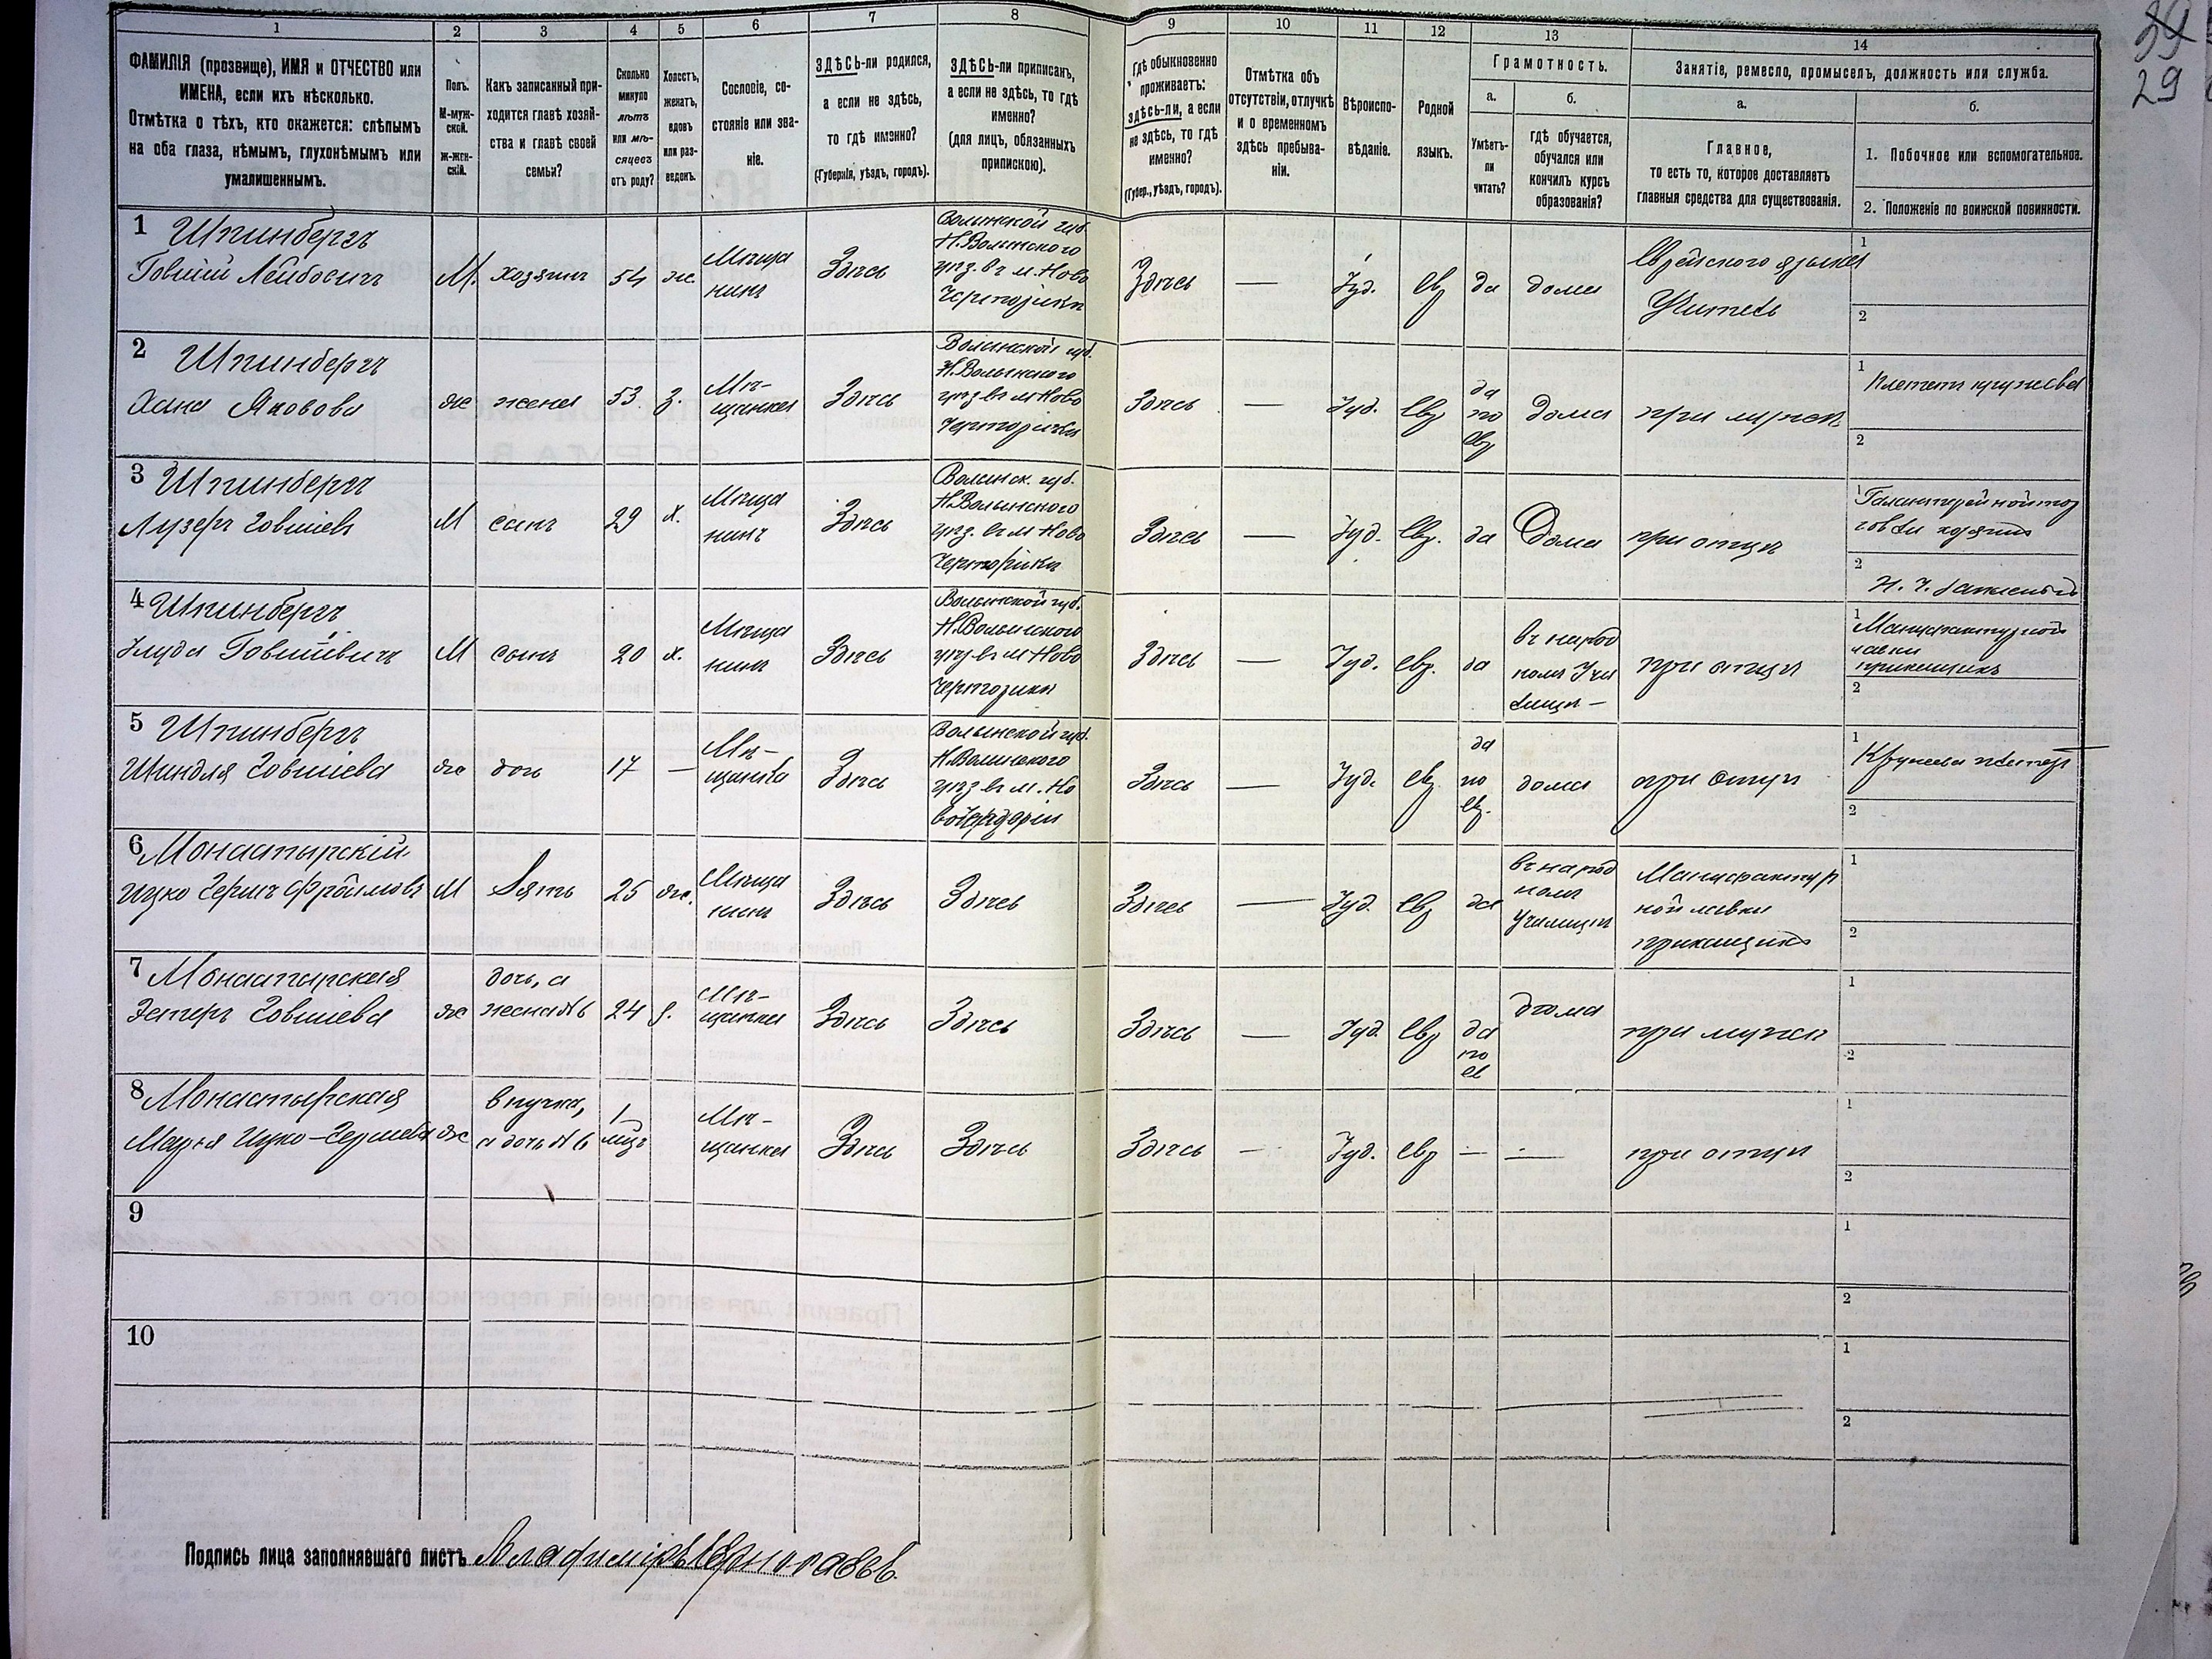 39
29
1
2
3
4
5
6
7
8
9
10
11
12
13
14
ФАМИЛІЯ (прозвище), ИМЯ и ОТЧЕСТВО или
ИМЕНА, если ихъ нѣсколько.
Отмѣтка о тѣхъ, кто окажется: слѣпымъ
на оба глаза, нѣмымъ, глухонѣмымъ или
умалишеннымъ.
Полъ.
М-муж-
ской.
ж-жен-
скій.
Какъ записанный при-
ходится главѣ хозяй-
ства и главѣ своей
семьи?
Сколько
минуло
лѣтъ
или мѣ-
сяцевъ
отъ роду?
Холостъ,
женатъ,
вдовъ
или раз-
веденъ.
Сословіе, со-
стояніе или зва-
ніе.
ЗДѢСЬ-ли родился,
а если не здѣсь,
то гдѣ именно?
(Губернія, уѣздъ, городъ).
ЗДѢСЬ-ли приписанъ,
а если не здѣсь, то гдѣ
именно?
(для лицъ, обязанныхъ
припискою).
Гдѣ обыкновенно
проживаетъ:
здѣсь-ли, а если
не здѣсь, то гдѣ
именно?
(Губер., уѣздъ, городъ).
Отмѣтка объ
отсутствіи, отлучкѣ
и о временномъ
здѣсь пребыва-
ніи.
Вѣроиспо-
вѣданіе.
Родной
языкъ.
Грамотность.
а.
Умѣетъ-
ли
читать?
б.
гдѣ обучается,
обучался или
кончилъ курсъ
образованія?
Занятіе, ремесло, промыселъ, должность или служба.
а.
Главное,
то есть то, которое доставляетъ
главныя средства для существованія.
б.
1. Побочное или вспомогательное.
2. Положеніе по воинской повинности.
1 Шпинбергъ
Говшій Лейбовичъ
М.
хозяинъ
54
ж.
Мѣща
нинъ
Здѣсь
Волынской губ.
Н.Волынского
уѣз. въ м. Ново
Чарторійки
Здѣсь
—
Іуд.
Евр
да
дома
Еврейского языка
Учитель
1
2
2 Шпинбергъ
Яковова
ж
жена
53
з.
Мѣ-
щанка
Здѣсь
Волынской губ.
Н.Волынского
уѣз въ м Ново
Черторійки
Здѣсь
—
Іуд.
Евр
да
по
евр
Дома
при мужѣ
1
Плететъ кружева
2
3 Шпинбергъ
Лузеръ Говшіевъ
М
сынъ
29
х.
Мѣща
нинъ
Здѣсь
Волынск. губ.
Н.Волынского
уѣз. въ м Ново
Черторійки
Здѣсь
—
Іуд.
Евр.
да
Дома
при отцѣ
1
Галантерейной тор
говли хозяинъ
2
4 Шпинбергъ
Говшіевичъ
М
сынъ
20
х.
Мѣща
нинъ
Здѣсь
Волынской губ.
Н.Волынского
уѣз въ м Ново
Черторійки
Здѣсь
—
Іуд.
Евр.
да
въ народ
номъ Учи
лищѣ —
при отцѣ
1
Мануфактурной
лавки
прикащикъ
2
5 Шпинбергъ
Шиндля Говшіева
ж
дочь
17
—
Мѣ-
щанка
Здѣсь
Волынской губ.
Н.Волынского
уѣз въ м. Но
Здѣсь
—
Іуд.
Евр
да
по
ев.
дома
при отцѣ
1
Кружева плететъ
2
6 Монастырскій
Ицко Гершъ Фроимовъ
М
Зять
25
ж.
Мѣща
нинъ
Здѣсь
Здѣсь
Здѣсь
—
Іуд.
Евр
да
въ народ
номъ
Училищѣ
Мануфактур
ной лавки
прикащикъ
1
2
7 Монастырская
Эстеръ Говшіева
ж
дочь, а
жена №6
24
з.
Мѣ-
щанка
Здѣсь
Здѣсь
Здѣсь
—
Іуд.
Евр
да
по
ев
дома
при мужѣ
1
2
8 Монастырская
Марья Ицко-Гершева
ж
внучка,
а дочь №6
1
мцъ
Мѣ-
щанка
Здѣсь
Здѣсь
Здѣсь
—
Іуд.
Евр
—
—
при отцѣ
1
2
9
1
2
10
1
2
Подпись лица заполнявшаго листъ Владиміръ